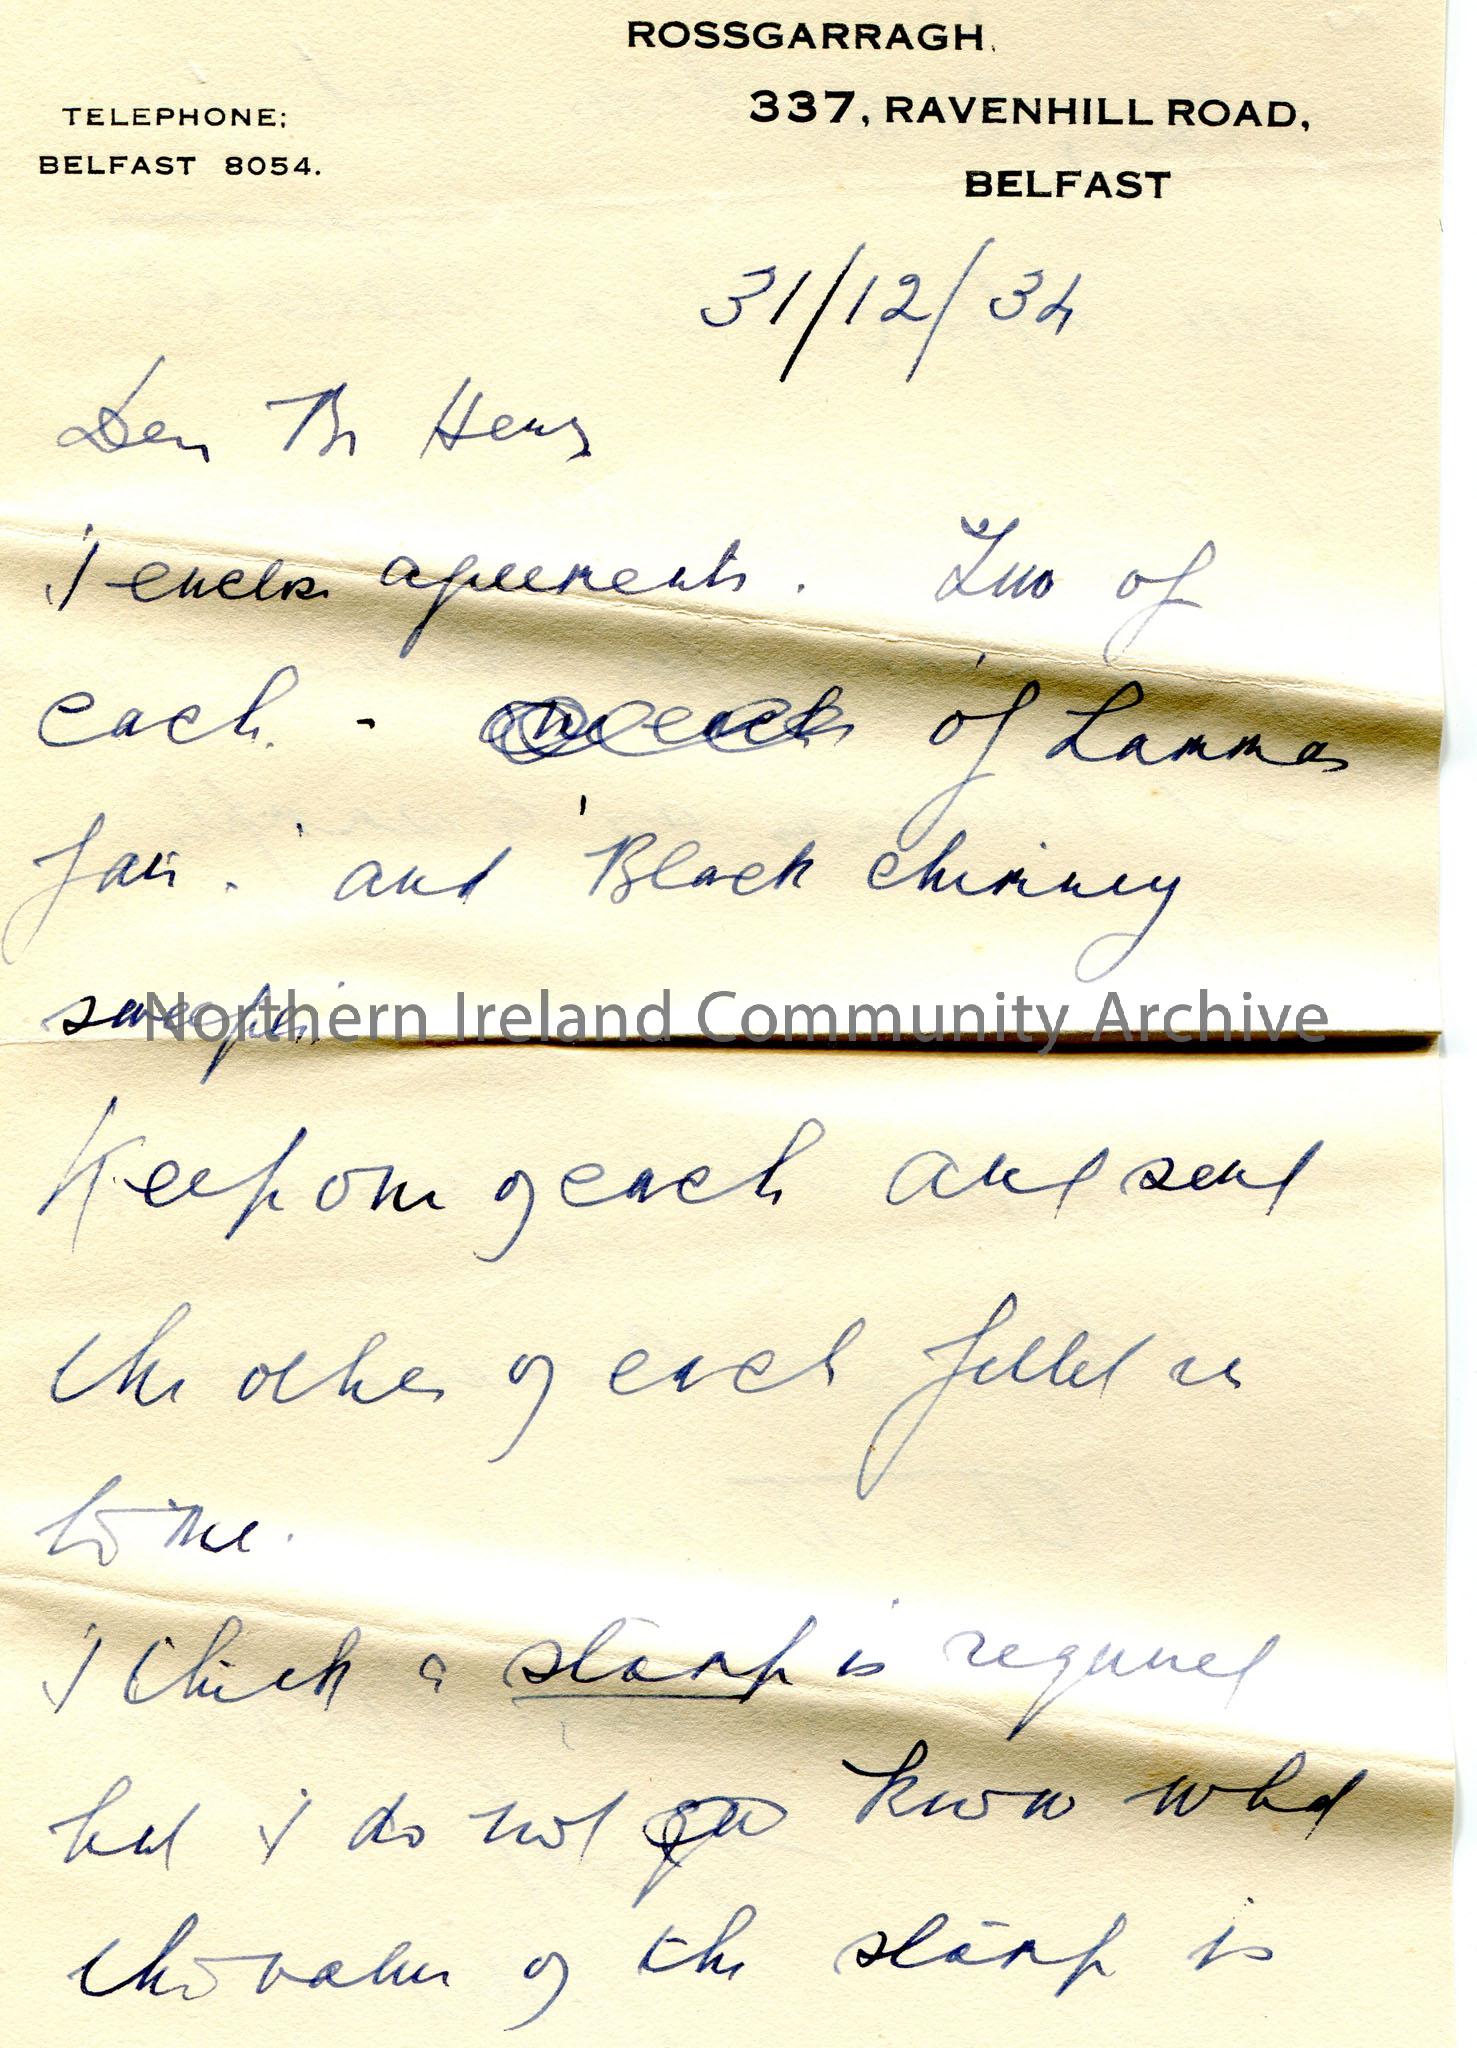 ROSSGARRAGH.
TELEPHONE:
BELFAST 8054.
337, RAVENHILL ROAD,
BELFAST
31/12/34
Dear Mr Henry
I enclose agreements. Two of
each. - of 'Lammas
Fair.' and 'Black chimney
sweeper'
Northern Ireland Community Archive
Keep one of each and send
the other of each filled in
to me.
I think a stamp is required
but I do not know what
the value of the stamp is